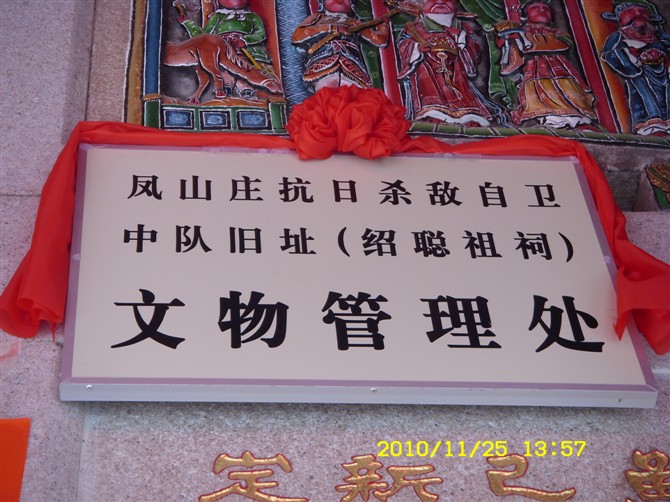 凤山庄抗日杀敌自卫
中队旧址(绍聪祖祠)
文物管理处
2010/11/25 13:57
定新己